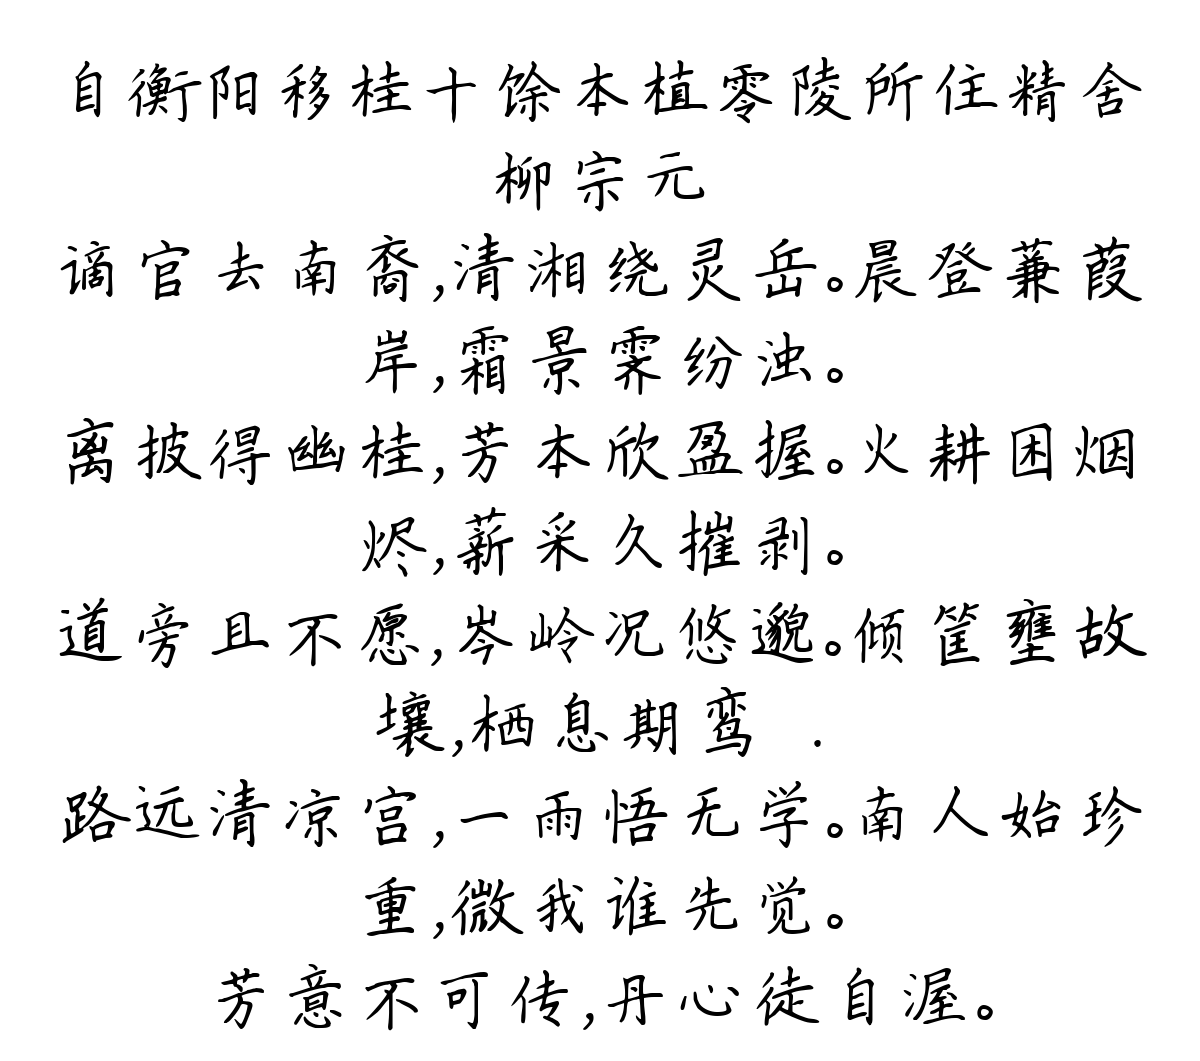 自衡阳移桂十馀本植零陵所住精舍
柳宗元
谪官去南裔,清湘绕灵岳。晨登蒹葭
岸,霜景霁纷浊。
离披得幽桂,芳本欣盈握。火耕困烟
烬,薪采久摧剥。
道旁且不愿,岑岭况悠邈。倾筐壅故
壤,栖息期鸾 .
路远清凉宫,一雨悟无学。南人始珍
重,微我谁先觉。
芳意不可传,丹心徒自渥。